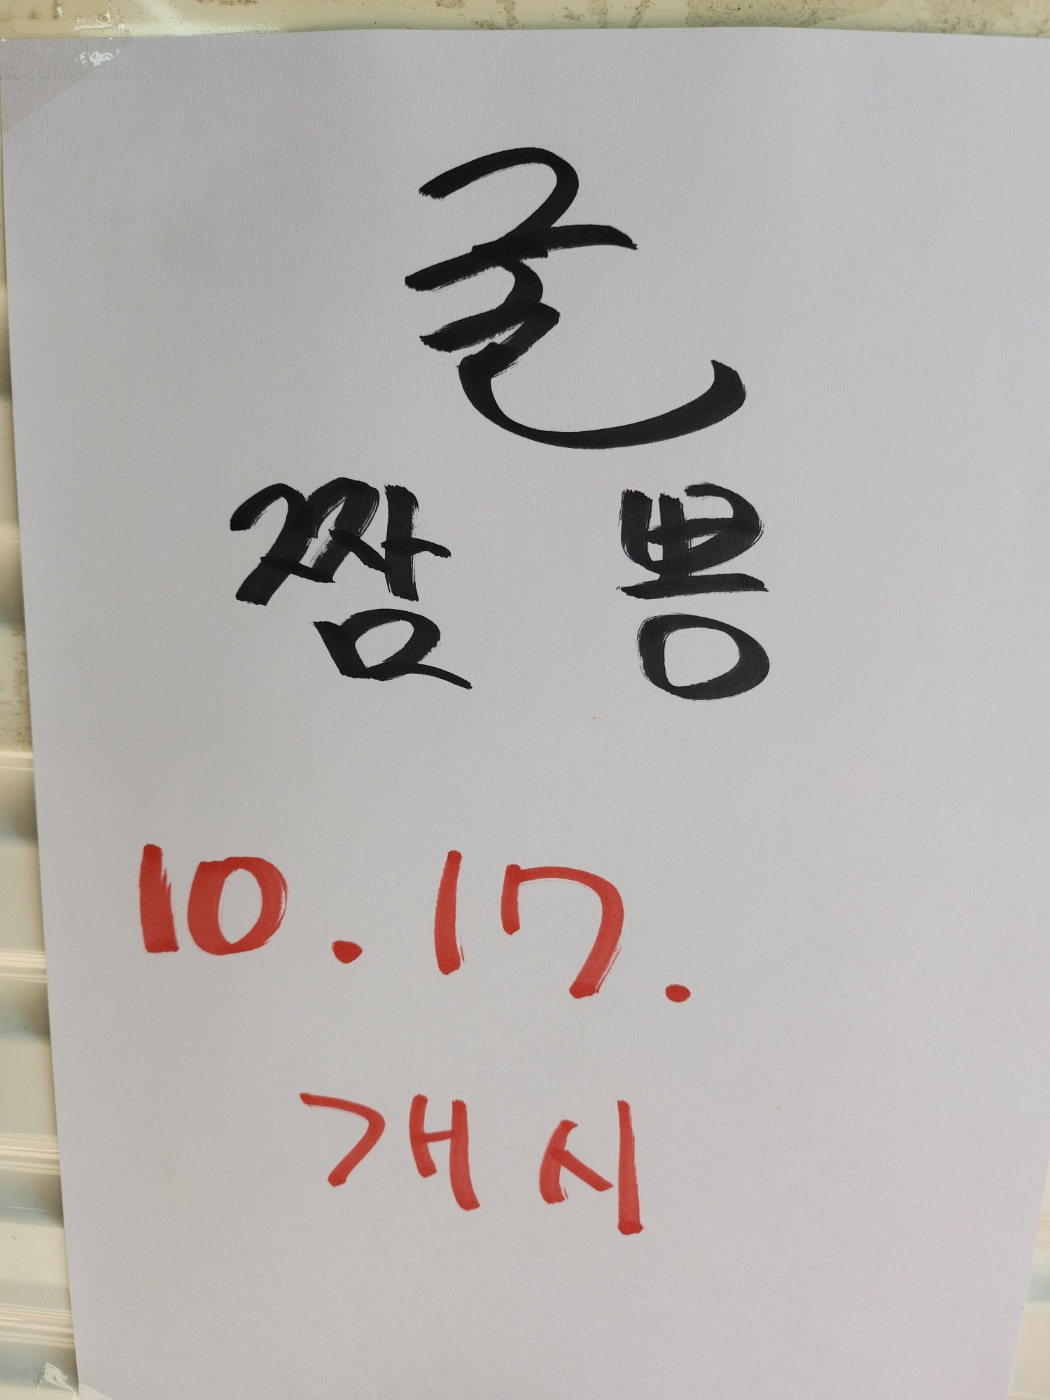 굴
짬 뽕
10.17.
개시